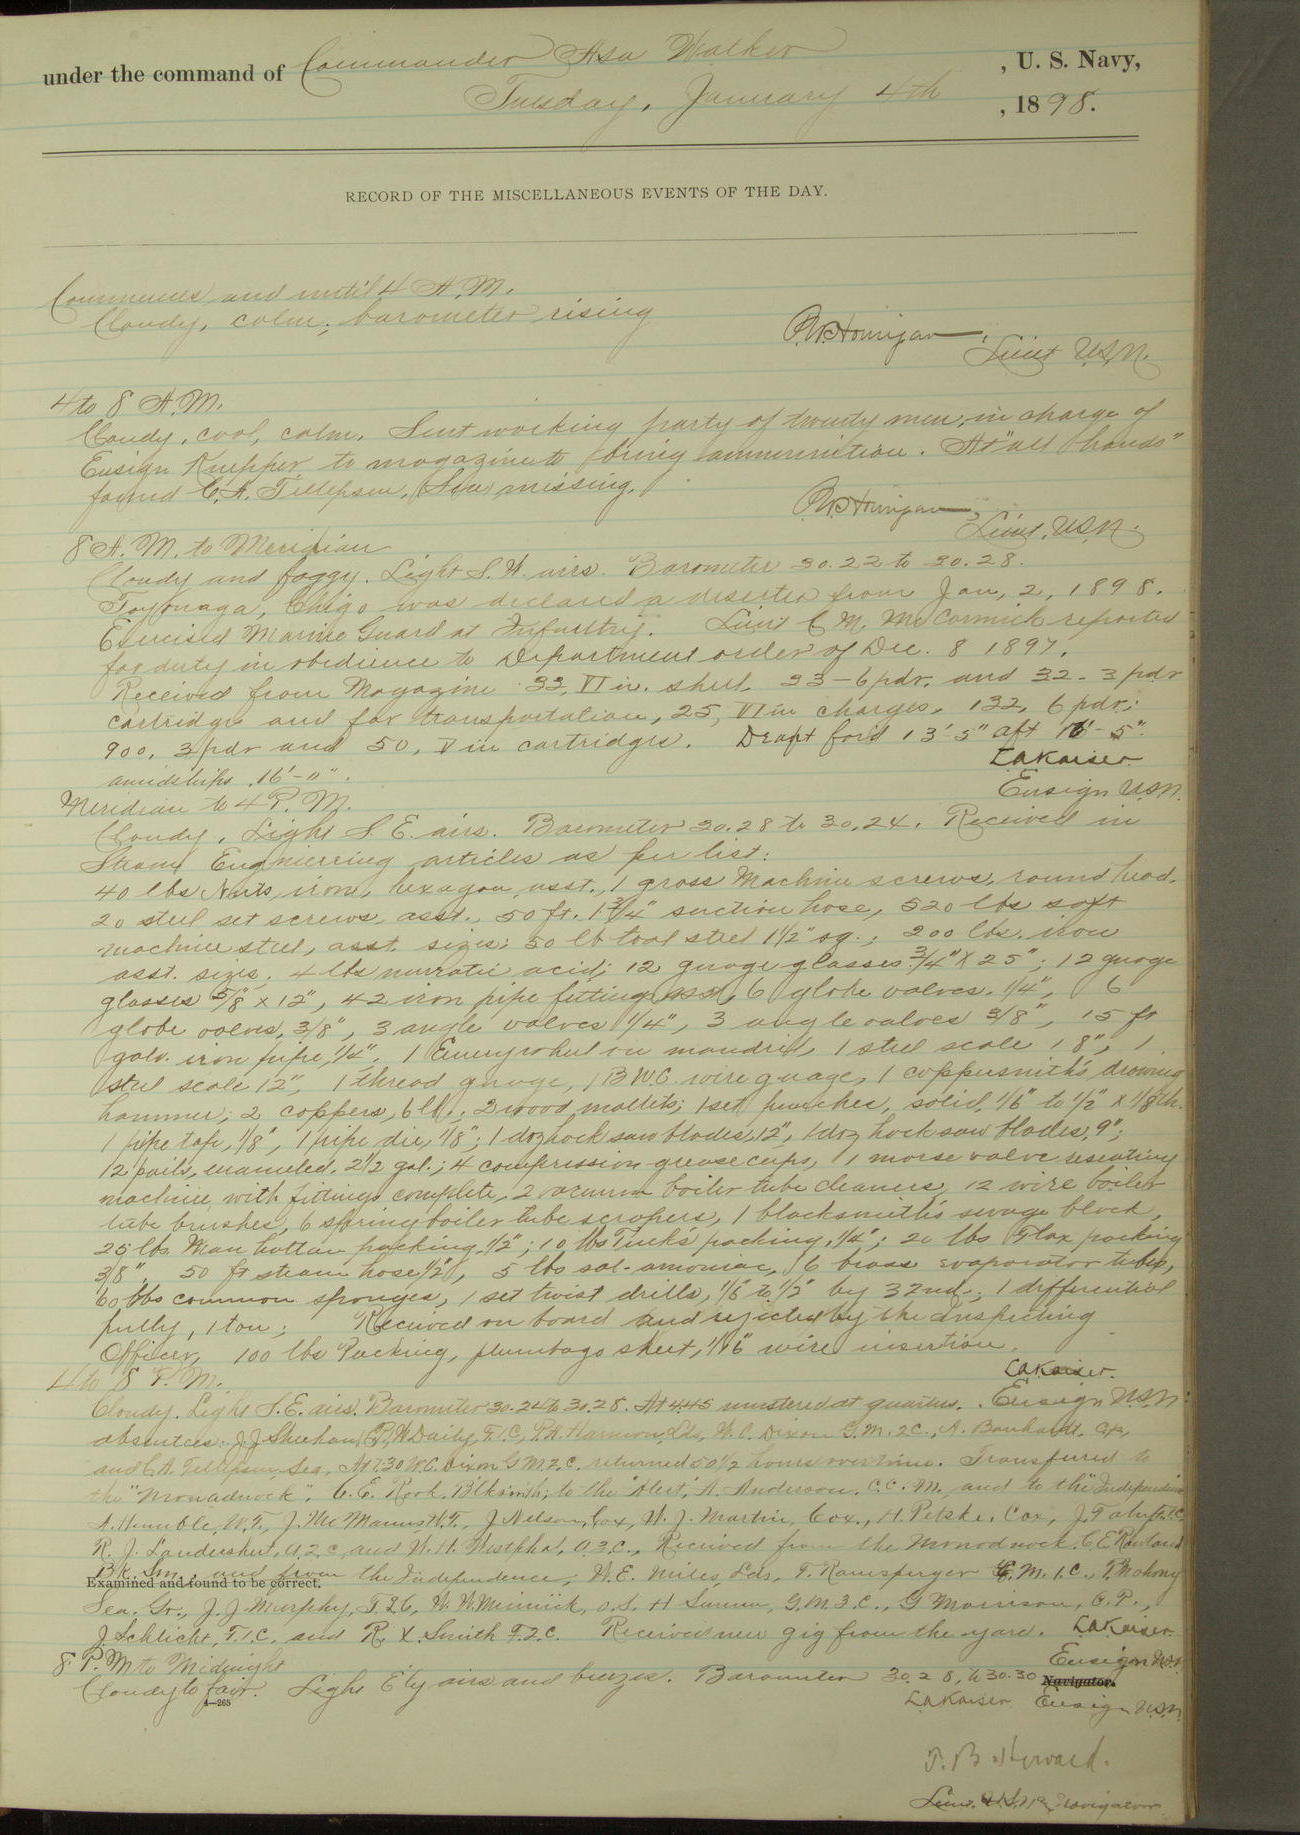 under the command of Commander Asa Walker, U. S. Navy,
Tuesday, January 4th, 1898.
RECORD OF THE MISCELLANEOUS EVENTS OF THE DAY.
Commences and until 4 A.M.
Cloudy, calm; barometer rising
Lieut U.S.N.
4 to 8 A.M.
Cloudy, cool, calm. Sent working party of twenty men, in charge of
Ensign Knepper to magazine to bring ammunition. At "all hands"
found C.A. Tellepsen, (Sea) missing.
Lieut. U.S.N.
8 A.M. to Meridian
Cloudy and foggy. Light S.W. airs. Barometer 30.22 to 30.28.
Toyonaga, Chigo was declared a deserter from Jan, 2, 1898.
Exercised Marine Guard at Infantry. Lieut C M. McCormick reported
for duty in obedience to Department order of Dec. 8 1897.
Received from Magazine 33, VI in. shell, 33-6 pdr. and 32-3 pdr
cartridges and for transportation, 25, VI in charges, 132, 6 pdr;
900, 3 pdr and 50, V in cartridges. Draft for'd 13'-5" aft 16'-5".
amidships 16'-"".
LAKaiser
Ensign U.S.N.
Meridian to 4 P.M.
Cloudy, Light S.E. airs. Barometer 30.28 to 30.24. Received in
Steam Engineering articles as per list:
40 lbs Nuts, iron, hexagon asst., 1 gross Machine screws, round head.
20 steel set screws asst., 50 ft. 1 3/4" suction hose, 520 lbs soft
machine steel, asst. sizes; 50 lb tool steel 1 1/2" sq.; 200 lbs. iron
asst. sizes; 4 lbs muratic acid; 12 guage glasses 3/4" x 25"; 12 guage
glasses 5/8" x 12", 42 iron pipe fitting asst, 6 globe valves. 1/4", 6
globe valves, 3/8", 3 angle valves 1/4", 3 angle valves 3/8", 15 ft
galv. iron pipe, 1/4". 1 Emery wheel on mandril, 1 steel scale 18", 1
steel scale 12", 1 thread guage, 1 B.W.G. wire guage, 1 coppersmith's drawing
hammer; 2 coppers, 6 lb; 2 wood mallets; 1 set punches, solid, 1/16" to 1/2" x 1/8th.
1 pipe tap, 1/8", 1 pipe die, 1/8"; 1 doz hack saw blades, 12", 1 doz hack saw blades, 9";
12 pails, enameled, 2 1/2 gal.; 4 compression grease cups, 1 morse valve reseating
machine, with fittings complete, 2 vacuum boiler tube cleaners, 12 wire boiler
tube brushes, 6 spring boiler tube scrapers, 1 blacksmith's swage block,
25 lbs Manhattan packing, 1/2"; 10 lbs Tuck's packing, 1/4"; 20 lbs Flax packing
3/8", 50 ft steam hose 1/2", 5 lbs sal-amoniac, 6 brass evaporator tubes,
60 lbs common sponges, 1 set twist drills, 1/16" to 1/2" by 32nd.; 1 differential
pully, 1 ton; Received on board and rejected by the Inspecting
Officer, 100 lbs Packing, plumbago sheet, 1/16" wire insertion.
LAKaiser.
Ensign USN.
4 to 8 P.M.
Cloudy. Light S.E. airs. Barometer 30.24 to 30.28. At 4.45 mustered at quarters.
absentees: J.J Sheehan, P.W Daily, F.1C, P.H. Harmon, Lds, W.C. Dixon G.M. 2C., A. Bonhardt, Cx,
and C.A. Tellepsen, Sea. At 7.30 W.C. Dixon G M. 2.C. returned 50 1/2 hours overtime. Transferred to
the "Monadnock". C.E. Blksmith; to the "Alert", A. Anderson. C.C.M. and to the "Independence"
A. Humble, W.T., J. McManus W.T., J. Nelson, Cox, W. J. Martin, Cox., H. Petske, Cox, J. F.1C.
R. J. Landershert, a 2 c, and W. H. Westphal, a.3.C., Received from the Monadnock C E Rowland
Bk Sm., and from the Independence, W.E. Miles, Lds, F. Ramsperger G.M. 1.C., T. Mahony
Examined and found to be correct.
Sea. Gr., J. J. Murphy, F.2C, W. W. Minnick, o.S. H Surman, G.M 3.C., G Morrison, C.P.,
J. Schlicht, F.1.C. and R. X. Smith F.2.C. Received new gig from the yard. LAKaiser
Ensign USN
8 P.M. to Midnight
Cloudy to fair. Light E'ly airs and breezes. Barometer 30.28, to 30.30 Navigator.
LAKaiser Ensign U.S.N.
4-265
T. B. Howard.
Lieut. U.S.N. Navigator